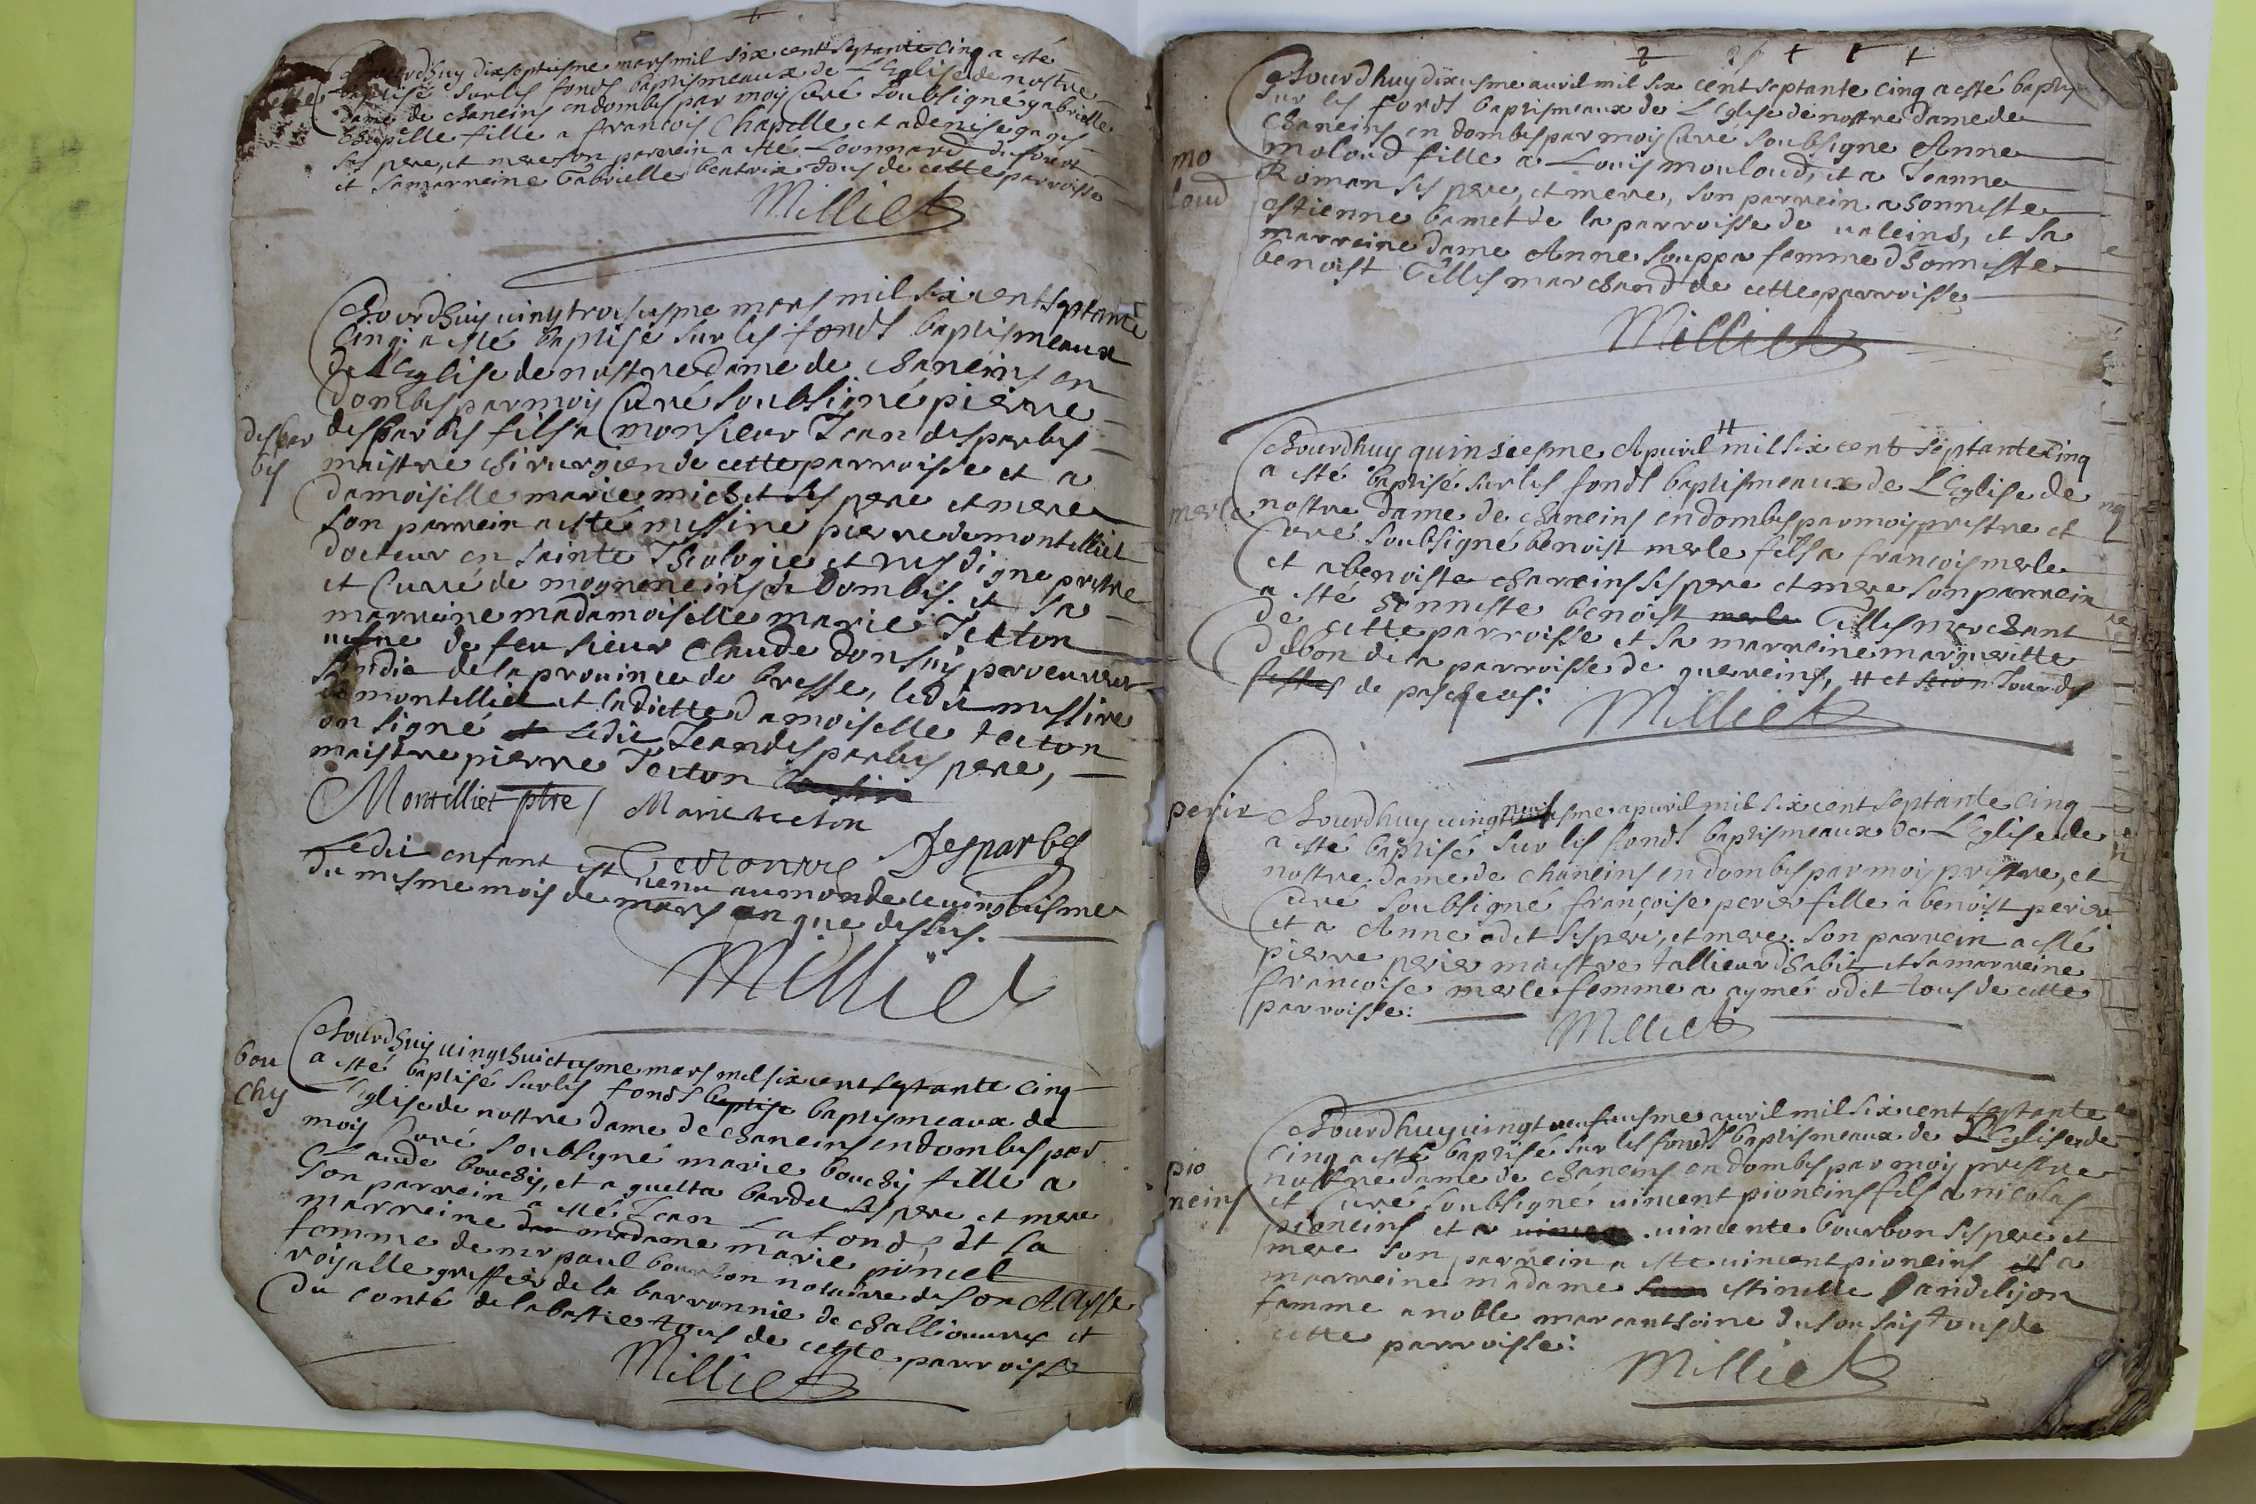 Chourdhuy dixseptiesme mars mil six cent septante cinq a esté
baptisé sur les fonds baptismeaux de L'Eglise de nostre
dame de chaneins en dombes par moy Curé soubsigné gabrielle
Chapelle fille a francois Chapelle et a denise
ses pere, et mere son parrein a esté Leonnard dufour
et sa marreine Gabrielle beatrix tous de cette parroisse
Milliet
Chourdhuy vingt troisiesme mars mil six cent septante
Cinq a esté baptisé sur les fonds baptismeaux
de L'Eglise de nostre Dame de chaneins en
Dombes par moy Curé soubsigné pierre
desparbes fils a monsieur Jean desparbes
maistre chirurgien de cette parroisse et a
damoiselle marie michet ses pere et mere
son parrein a esté messire pierre de montelliet
docteur en sainte Theologie et tres digne prestre
et Curré de mogneneins de Dombes. et sa
marreine madamoiselle marie Tecton
vefve de feu sieur Claude donsuy procureur
scindic de la province de bresse, ledit messire
de montelliet et ladictte damoiselle tecton
on signé et Ledit Jean desparbes pere,
maistre pierre Tecton
despar
bes
Montelliet ptre Marie tecton
Tectonne Desparbes
Ledit enfant est venu au monde le vingtiesme
du mesme mois de mars an que dessus.
Milliet
bou
chy
Chourdhuy vingt huictiesme mars mil six cent septante cinq
a esté baptisé sur les fonds baptise baptismeaux de
L'Eglise de nostre dame de chaneins en dombes par
moy Curé soubsigné marie bouchy fille a
Claude bouchy, et a guelta bardet ses pere et mere
son parrein a esté Jean Lafond, et sa
marreine madame marie poncet
femme de mr paul bourbon notaire de son Altesse
royalle greffier de la barronnie de challiouvres et
du conté de la bastie tous de cette parroisse
Milliet
Chourdhuy dixiesme avril mil six cent septante cinq a esté baptisé
sur les fonds baptismeaux de L'Eglise de nostre dame de
Chaneins en dombes par moy Curé soubsigné Anne
moloud fille a Louis mouloud, et a Jeanne
Roman ses pere, et mere, son parrein a honneste
estienne bamet de la parroisse de valeins, et sa
marreine dame Anne souppa femme d'honneste
benoist Gilles marchand de cette parroisse,
mo
loud
Milliet
Chourdhuy quinsiesme Apuril # mil six cent septante cinq
a esté baptisé sur les fonds baptismeaux de L'Eglise de
nostre Dame de chaneins en dombes par moy prestre et
Curé soubsigné benoist merle fils a francois merle
et a benoiste charreins ses pere et mere son parrein
a esté honneste benoist merle Gilles marchant
de cette parroisse et sa marreine margueritte
debon de la parroisse de guereins, # et
festes de pasques:
merle
Milliet
perier
Chourdhuy vingt neufiesme apuril mil six cent septante cinq
a esté baptisé sur les fonds baptismeaux de L'Eglise de
nostre dame de chaneins en dombes par moy prestre, et
Curé soubsigné françoise perier fille a benoist perier
et a Anne odet ses pere, et mere: son parrein a esté
pierre perier maistre tallieur d'habit et sa marreine
françoise merle femme a aymé odet tous de cette
parroisse:
Milliet
pio
neins
Chourdhuy vingt neufviesme avril mil six cent septante
cinq a esté baptisé sur les fonds baptismeaux de L'Eglise de
nostre dame de chaneins en dombes par moy prestre
et Curé soubsigné vincent pioneins fils a nicolas
pioneins et a vincente bourbon ses pere et
mere son parrein a esté vincent pioneins et sa
marreine madame estinette
famme a noble marcanthoine tous de
cette parroisse:
Milliet